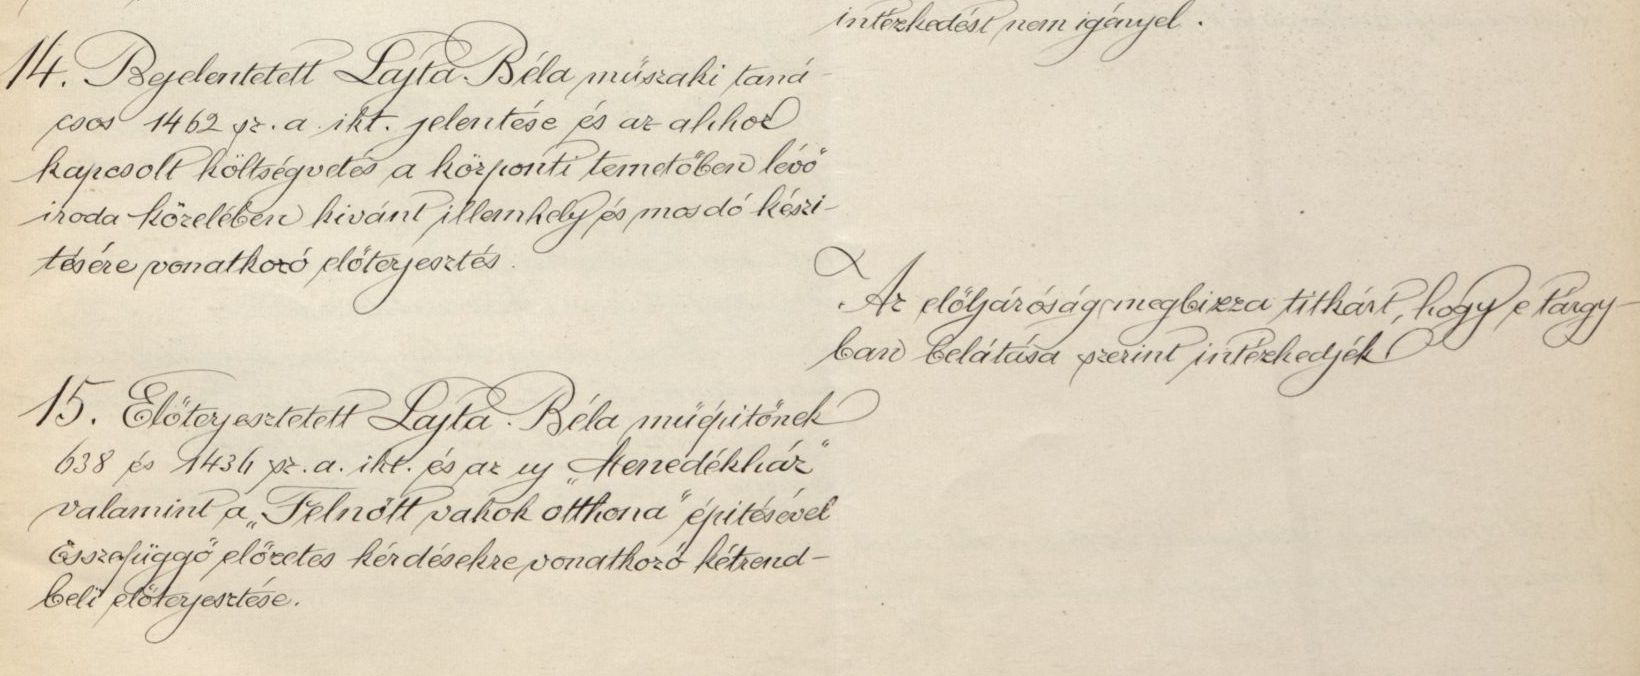 intézkedést nem igényel.
14. Bejelentetett Lajta Béla műszaki taná-
csos 1462 sz. a. ikt. jelentése és az ahhoz
kapcsolt költségvetés a központi temetőben lévő
iroda közelében kivánt illemhely és mosdó készi-
tésére vonatkozó előterjesztés.
Az előljáróság megbizza titkárt, hogy e tárgy-
ban belátása szerint intézkedjék
15. Előterjesztetett Lajta Béla müépitőnek
638 és 1436 sz. a. ikt. és az uj „Menedékház"
valamint a „Felnőtt vakok otthona" épitésével
összefüggő előzetes kérdésekre vonatkozó kétrend-
beli előterjesztése.